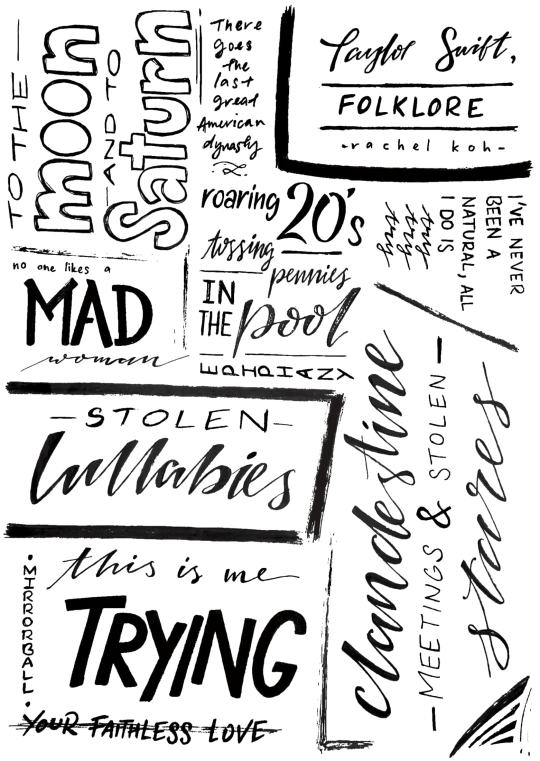 TO THE
moon
AND TO
Saturn
There
goes
the
last
great
American
dynasty
Taylor Swift,
FOLKLORE
-rachel koh-
roaring 20's
tossing
pennies
IN
THE pool
EPIPHANY
I'VE NEVER
BEEN A
NATURAL, ALL
I DO IS
try
try
try
no one likes a
MAD
woman
—STOLEN—
lullabies
clandestine
—MEETINGS & STOLEN—
stares
•MIRRORBALL•
this is me
TRYING
YOUR FAITHLESS LOVE